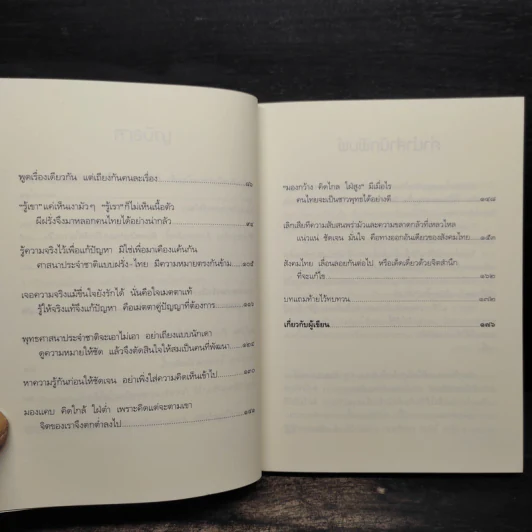 พูดเรื่องเดียวกัน แต่เถียงกันคนละเรื่อง
"รู้เขา" แค่เห็นเงามัวๆ "รู้เรา" ก็ไม่เห็นเนื้อตัว
ผีฝรั่งจึงมาหลอกคนไทยได้อย่างน่ากลัว ๙๔
รู้ความจริงไว้เพื่อแก้ปัญหา มิใช่เพื่อมาเคืองแค้นกัน
ศาสนาประจำชาติแบบฝรั่ง-ไทย มีความหมายตรงกันข้าม ๑๐๕
เจอความจริงแม้ขื่นใจยังรักได้ นั่นคือใจเมตตาแท้
รู้ให้จริงแท้จึงแก้ปัญหา คือเมตตาคู่ปัญญาที่ต้องการ
พุทธศาสนาประจำชาติจะเอาไม่เอา อย่าเถียงแบบนักเดา
ดูความหมายให้ชัด แล้วจึงตัดสินใจให้สมเป็นคนที่พัฒนา ๑๒๔
หาความรู้กันก่อนให้ชัดเจน อย่าเพิ่งใส่ความคิดเห็นเข้าไป ๑๓๐
มองแคบ คิดใกล้ ใฝ่ต่ำ เพราะคิดแต่จะตามเขา
จิตของเราจึงตกต่ำลงไป
"มองกว้าง คิดไกล ใฝ่สูง" มีเมื่อไร
คนไทยจะเป็นชาวพุทธได้อย่างดี ๑๔๘
เลิกเสียทีความสับสนพร่ามัวและความขลาดกลัวที่เหลวไหล
แน่วแน่ ชัดเจน มั่นใจ คือทางออกอันเดียวของสังคมไทย ๑๕๓
สังคมไทย เลื่อนลอยกันต่อไป หรือเด็ดเดี่ยวด้วยจิตสำนึก
ที่จะแก้ไข ๑๖๒
บทแถมท้ายไว้ทบทวน ๑๗๒
เกี่ยวกับผู้เขียน ๑๗๖